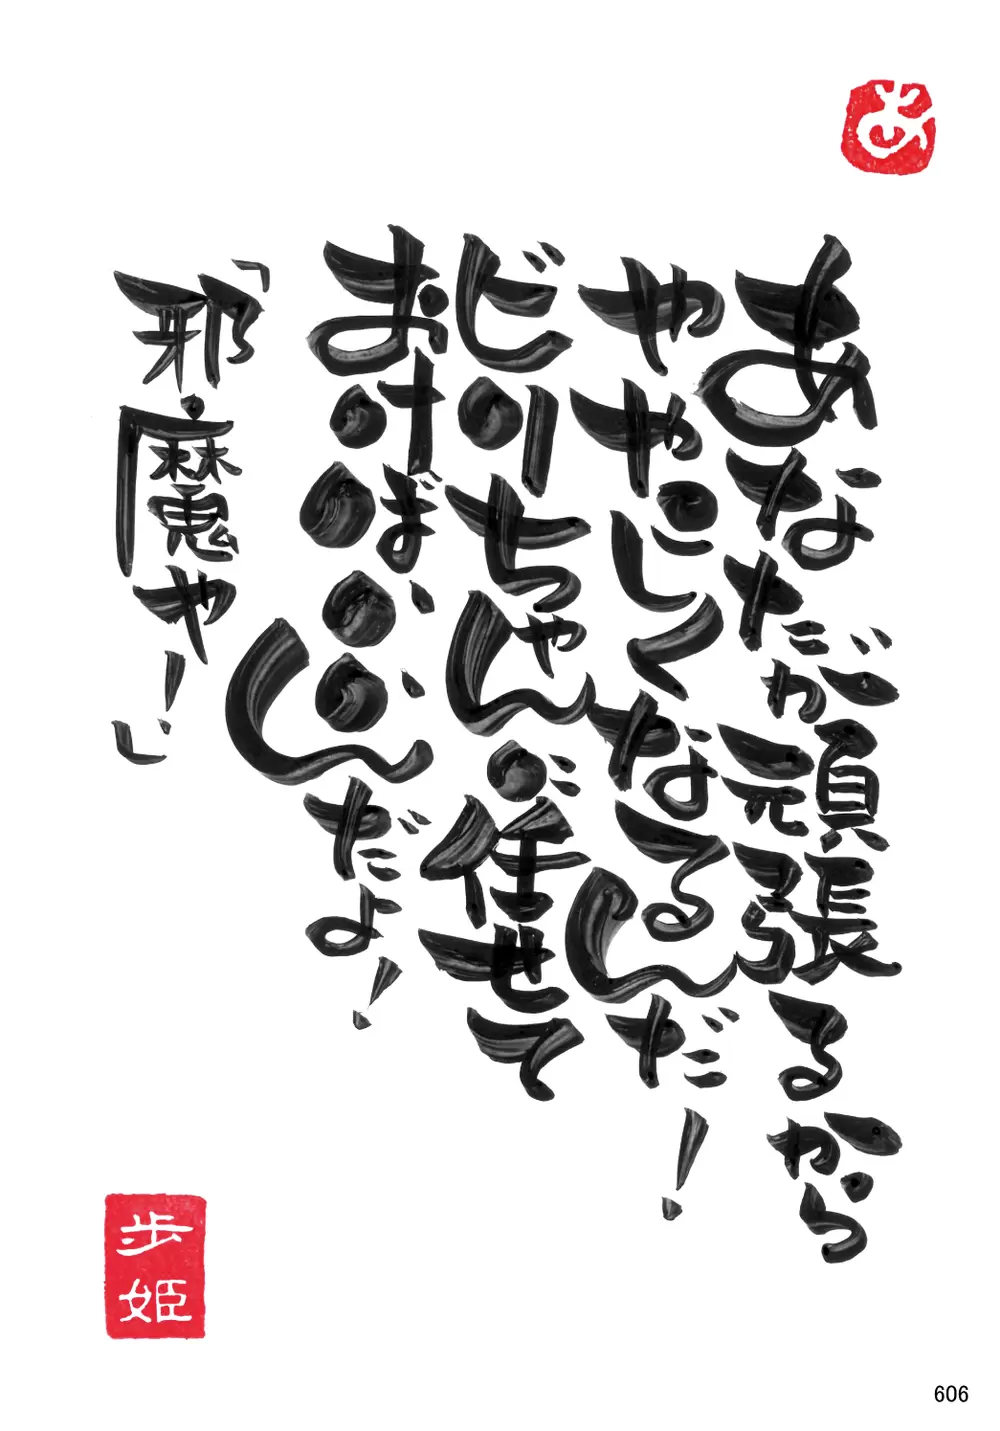 あ
あなたが頑張るから
ややこしくなるんだ！
ビリちゃんに任せて
おけばいいんだよ！
「邪魔や！」
歩姫
606